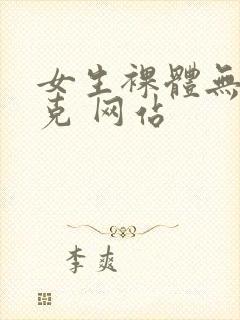 女生裸體無
克 网佔
李爽